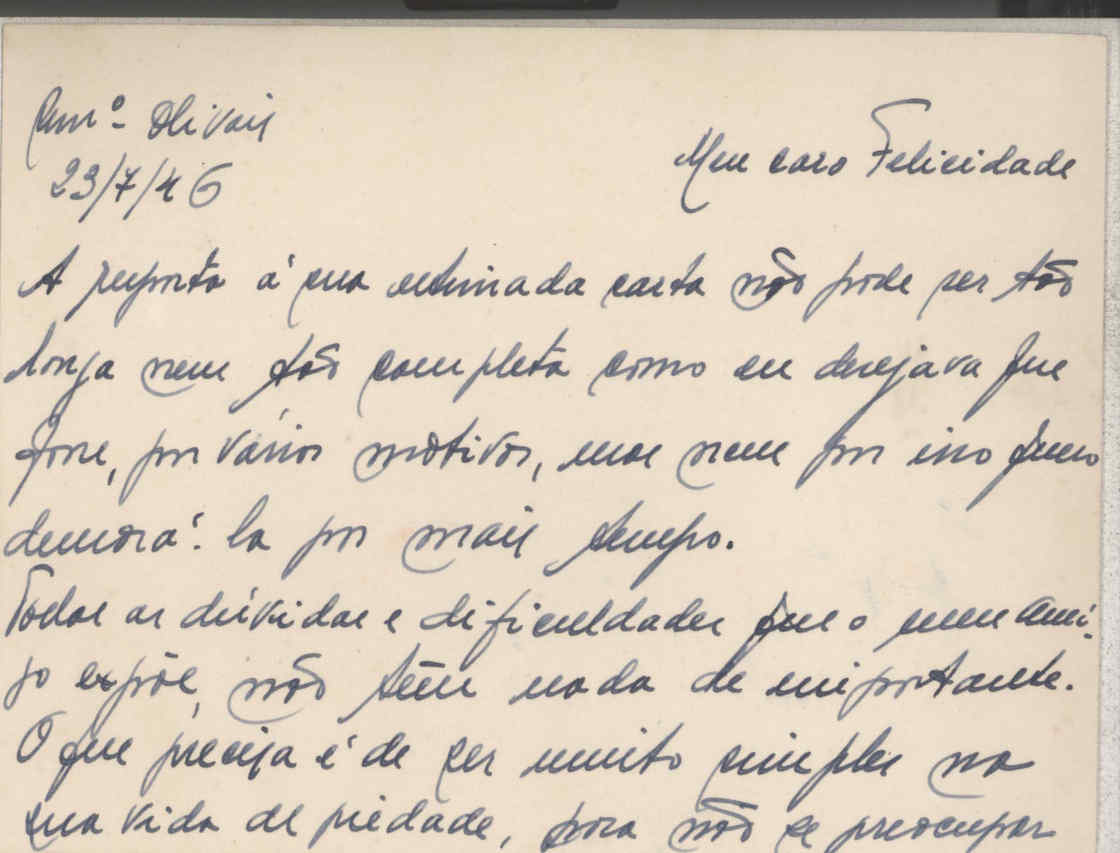 Semº - Olivais
23/7/46
Meu caro Felicidade
A resposta á sua estimada carta não pode ser tão
longa nem tão completa como eu desejava que
fosse, por vários motivos, mas nem por isso quero
demorá-la por mais tempo.
Todas as dúvidas e dificuldades que o meu ami-
go expõe, não têm nada de importante.
O que precisa é de ser muito simples na
sua vida de piedade, para não se preocupar